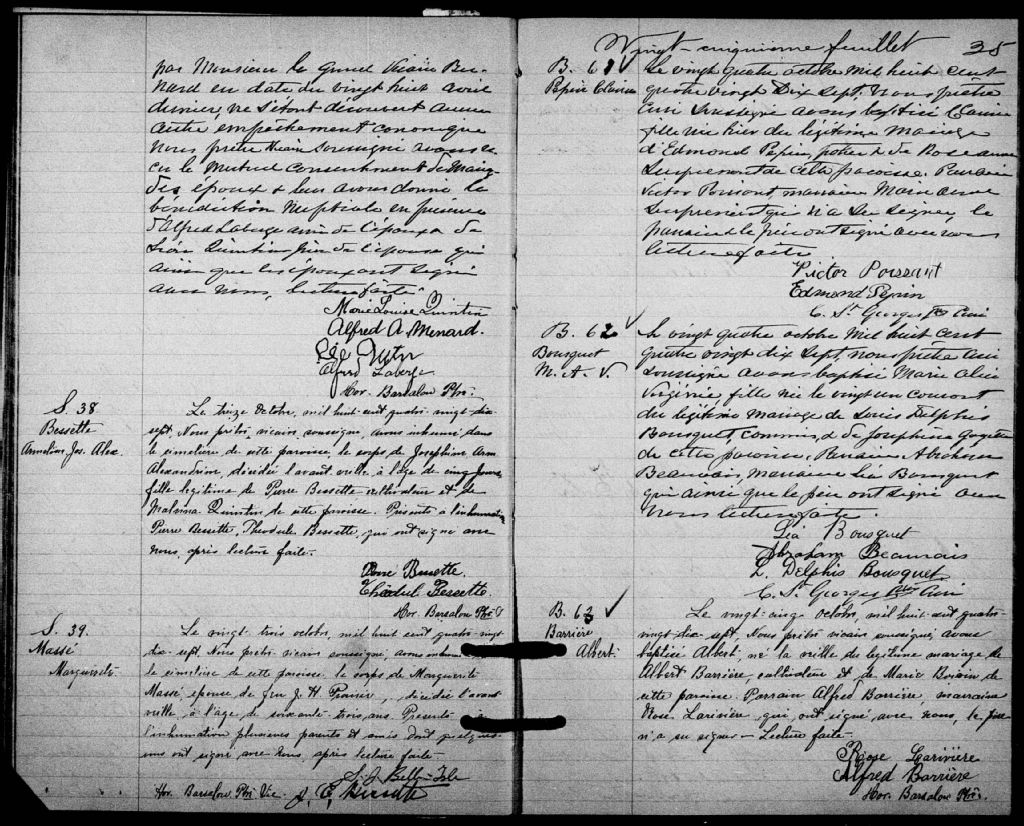 par Monsieur le Grand Vicaire
en date du vingt huit avril
dernier, ne s'étant découvert aucun
autre empêchement canonique
Nous prêtre vicaire soussigné avons
le mutuel consentement de
des époux & leur avons donné la
bénédiction nuptiale en présence
d'Alfred Laberge ami de l'époux & de
Quintin père de l'épouse qui
ainsi que les époux ont signé
avec nous, lecture faite
Marie Louise Quintin
Alfred A Menard.
Alfred Laberge
Hor. Barsalou Ptre.
S. 38
Bessette
Jos. Alex.
Le treize Octobre, mil huit cent quatre-vingt-dix-
sept, Nous prêtre, vicaire, soussigné, avons inhumé dans
le cimetière de cette paroisse, le corps de Josephine
Alexandrine, décédée l'avant-veille à l'âge de cinq jours
fille legitime de Pierre Bessette cultivateur et de
Malvina Quintin de cette paroisse. Présents à l'inhumation
Pierre Bessette, Theodule Bessette, qui ont signé avec
nous, après lecture faite.
Bessette.
Bessette.
Hor. Barsalou Ptre V
S. 39.
Massé
Marguerite
Le vingt-trois octobre, mil huit cent quatre-vingt
dix-sept. Nous prêtre vicaire soussigné, avons inhumé dans
le cimetière de cette paroisse le corps de Marguerite
Massé épouse de feu J. H. décédée l'avant
veille, à l'âge de soixante-trois ans. Presents à
l'inhumation plusieurs parents et amis dont quelques-
uns ont signé avec nous, après lecture faite
S. J. Belle-Isle
Hor. Barsalou Ptre Vic.
Vingt-cinquième feuillet 25
B. 61 ✓
Pepin
Le vingt quatre octobre mil huit cent
quatre vingt dix sept, nous prêtre
curé soussigné avons baptisé
fille née hier du légitime mariage
d'Edmond Pepin, & de Rose anna
Surprenant de cette paroisse. Parrain
Victor Poissant marraine
Surprenant qui n'a su signer, le
parrain & le père ont signé avec nous
lecture faite
Victor Poissant
Edmond Pepin
C. St Georges Ptre Curé
B. 62 ✓
Bousquet
M. A. V.
Le vingt quatre octobre mil huit cent
quatre vingt dix sept, nous prêtre curé
soussigné avons baptisé Marie Alice
Virginie fille née le vingt un courant
du légitime mariage de Louis Delphis
Bousquet, commis, & de Josephine
de cette paroisse, Parrain Abraham
Beauvais, Marraine Léa Bousquet
qui ainsi que le père ont signé avec
nous lecture faite.
Léa Bousquet
Abraham Beauvais
L. Delphis Bousquet
C. St Georges Ptre Curé
B. 63 ✓
Barrière
Albert
Le vingt-cinq octobre, mil huit cent quatre-
vingt-dix-sept. Nous prêtre vicaire soussigné, avons
baptisé Albert, né la veille du legitime mariage de
Albert Barrière, cultivateur et de Marie de
cette paroisse. Parrain Alfred Barrière, marraine
Rose Larivière qui ont signé avec nous, le père
n'a su signer - Lecture faite.
Rose Larivière
Alfred Barrière
Hor. Barsalou Ptre.